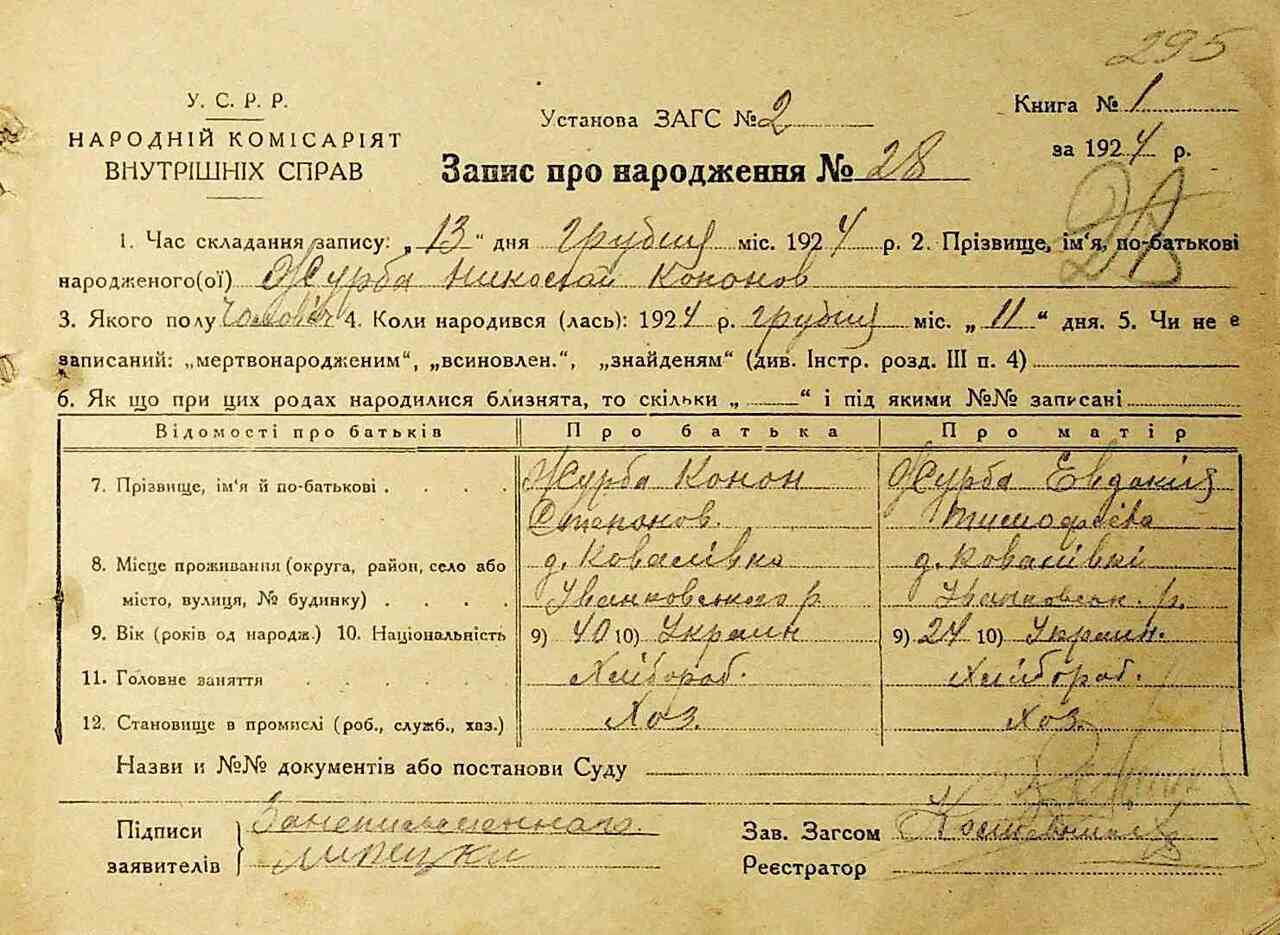 295
У. С. Р. Р.
НАРОДНІЙ КОМІСАРІЯТ
ВНУТРІШНІХ СПРАВ
Установа ЗАГС № 2
Книга № 1
за 1924 р.
Запис про народження № 28
1. Час складання запису: „ 13 “ дня грудня міс. 1924 р. 2. Прізвище, ім‘я, по-батькові
народженого(ої) Журба Николай Кононов
3. Якого полу чоловіч 4. Коли народився (лась): 1924 р. грудня міс. „ 11 “ дня. 5. Чи не е
записаний: „мертвонародженим“, „всиновлен.“, „знайденям“ (див. Інстр. розд. III п. 4)
6. Як що при цих родах народилися близнята, то скільки „ “ і під якими №№ записані
Відомості про батьків Про батька Про матір
7. Прізвище, ім'я й по-батькові . . . . Журба Конон Журба Евдокия
Степанов. Тимофеева
8. Місце проживання (округа, район, село або д. Ковалівка д. Ковалівкі
місто, вулиця, № будинку) . . . . Іванковського р Іванковськ. р.
9. Вік (років од народж.) 10. Національність 9) 40 10) Украин 9) 24 10) Украин.
11. Головне заняття . . . . . Хлібороб. Хлібороб.
12. Становище в промислі (роб., служб., хаз.) Хоз. Хоз.
Назви и №№ документів або постанови Суду
Підписи
заявителів
Зав. Загсом
Реєстратор